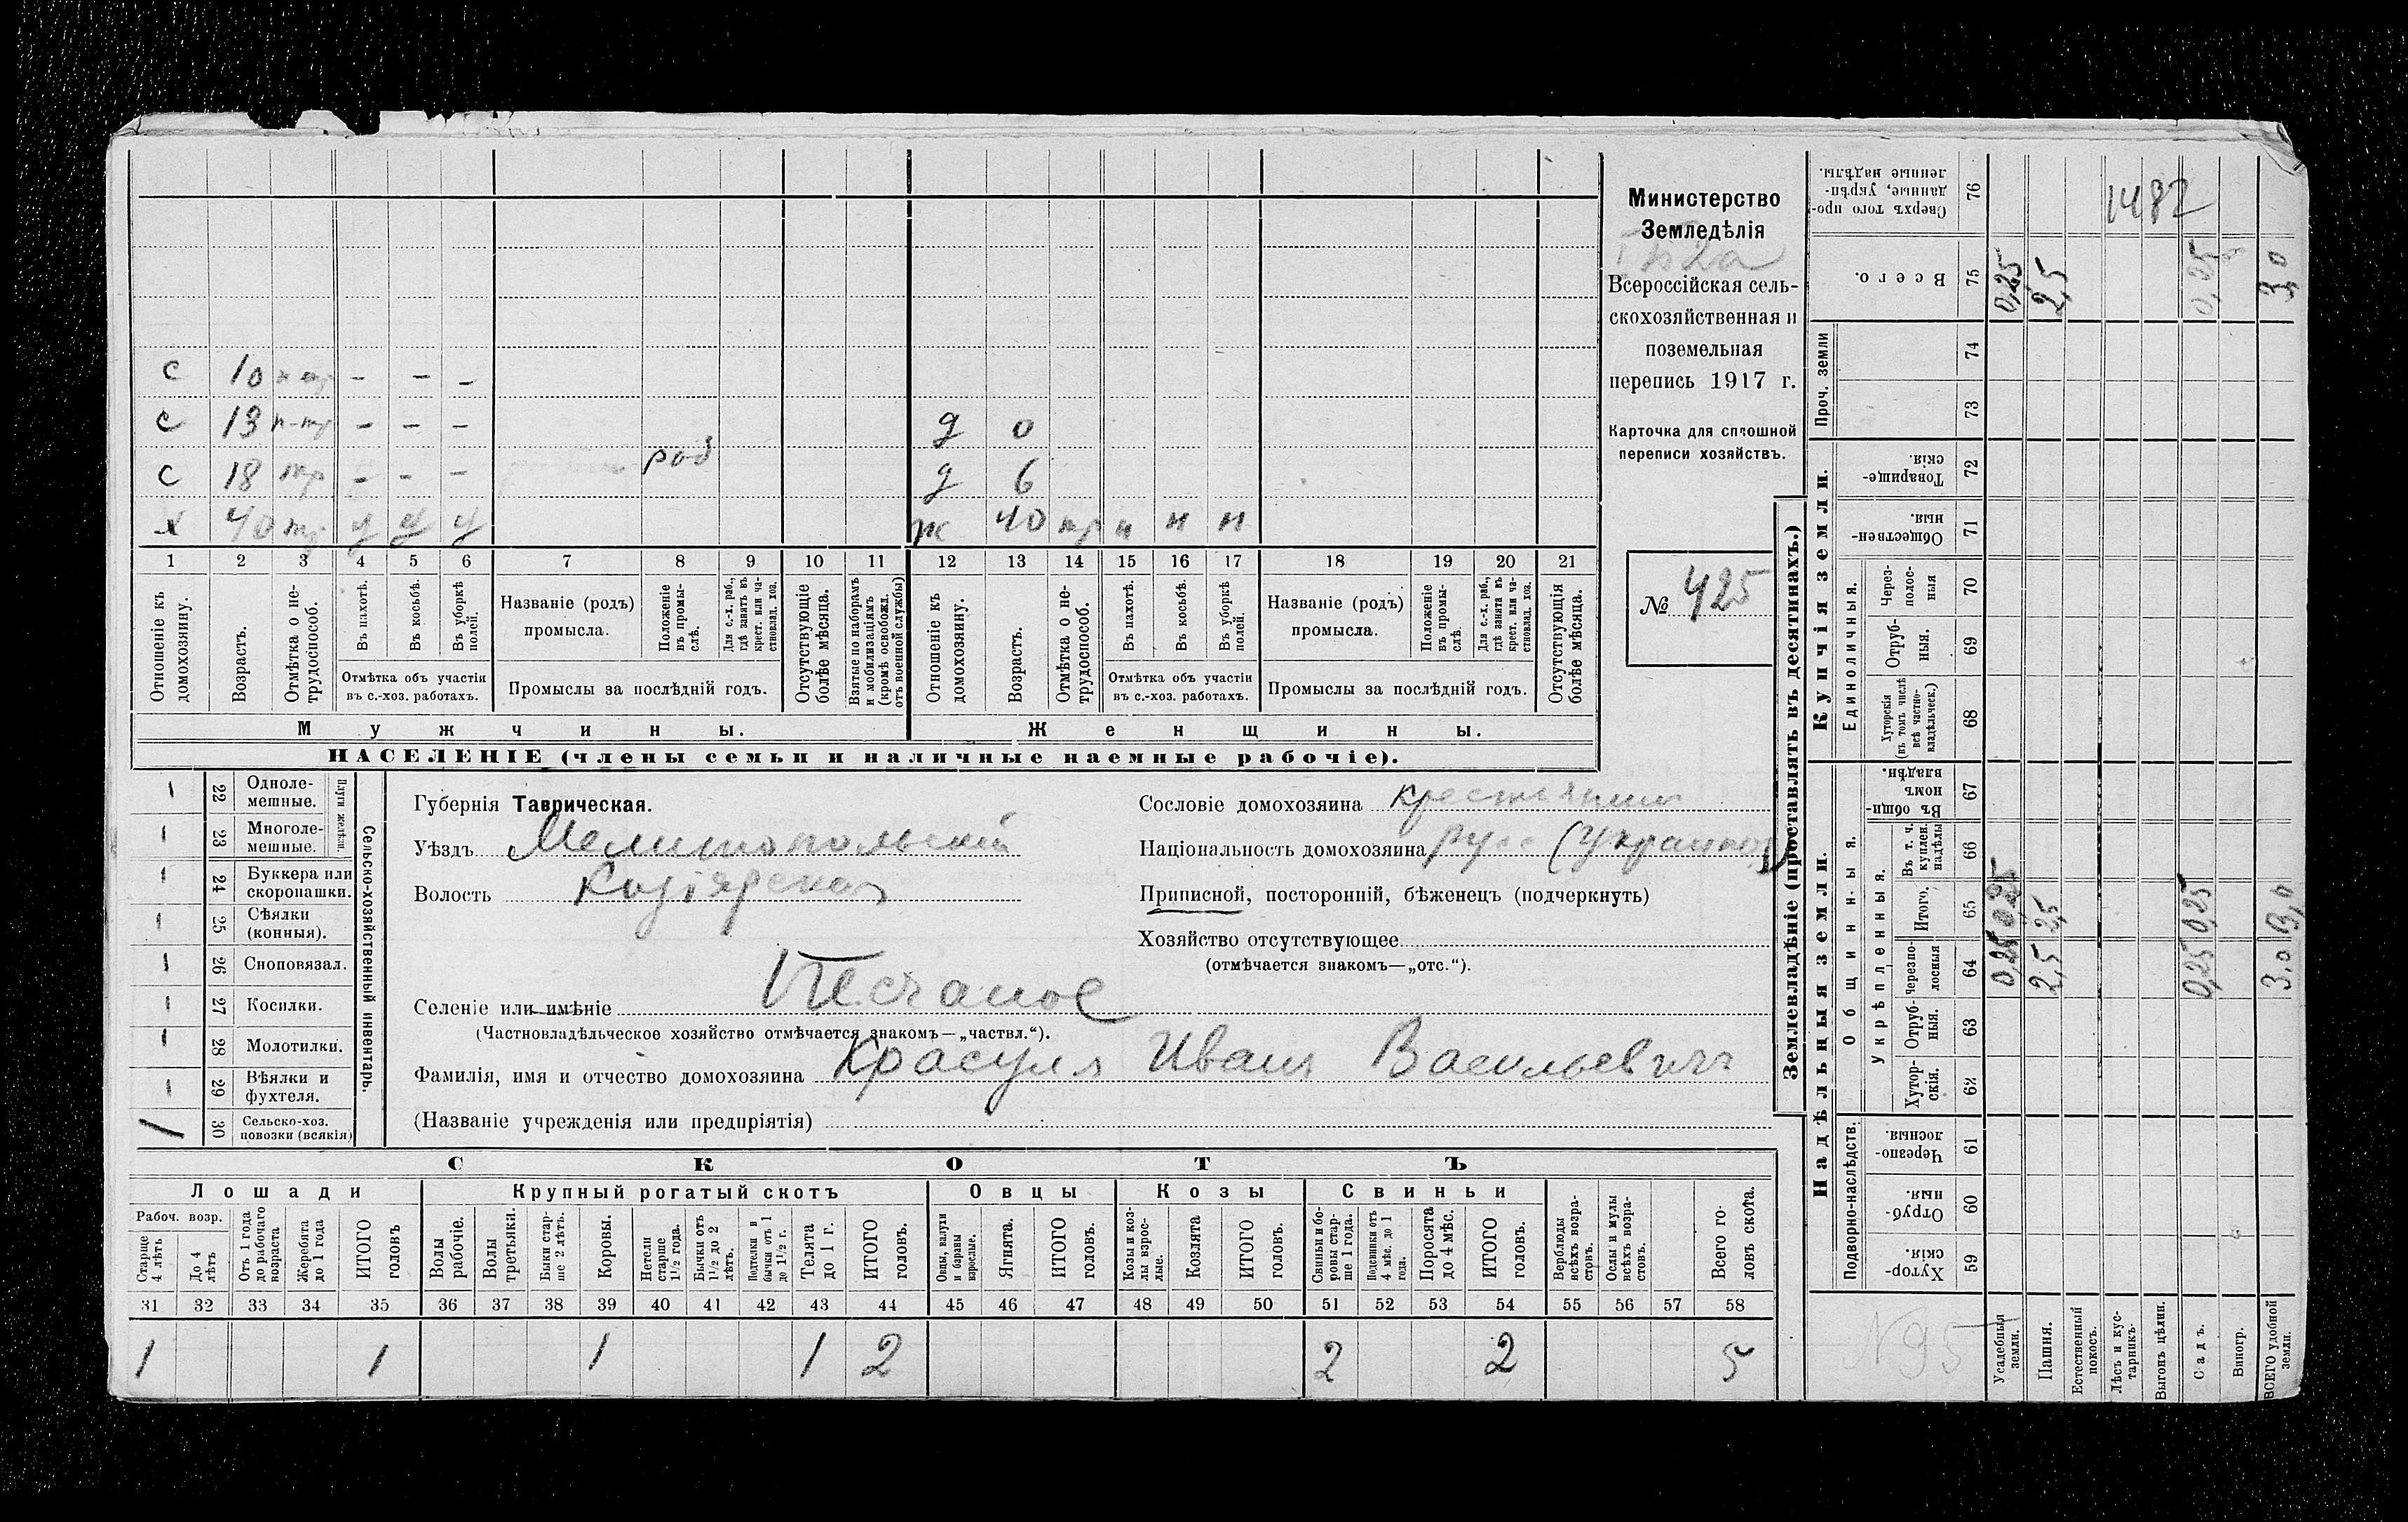 Министерство
Земледѣлія
Всероссійская сель-
скохозяйственная и
поземельная
перепись 1917 г.
Карточка для сплошной
переписи хозяйствъ.
№ 425
с 10 - - -
с 13 - - -
с 18 тр - - -
х 40 тр
д 0
д 6
ж 40 тр н н н
1 2 3 4 5 6 7 8 9 10 11 12 13 14 15 16 17 18 19 20 21
Отношеніе къ домохозяину.
Возрастъ.
Отмѣтка о не-трудоспособ.
Въ пахотѣ.
Въ косьбѣ.
Въ уборкѣ полей.
Отмѣтка объ участіи въ с.-хоз. работахъ.
Названіе (родъ) промысла.
Положеніе въ промы-слѣ.
Для с.-х. раб., гдѣ занятъ въ крест. или ча-стновлад. хоз.
Промыслы за послѣдній годъ.
Отсутствующіе болѣе мѣсяца.
Взятые по наборамъ и мобилизаціямъ (кромѣ освобожд. отъ военной службы)
Отношеніе къ домохозяину.
Возрастъ.
Отмѣтка о не-трудоспособ.
Въ пахотѣ.
Въ косьбѣ.
Въ уборкѣ полей.
Отмѣтка объ участіи въ с.-хоз. работахъ.
Названіе (родъ) промысла.
Положеніе въ промы-слѣ.
Для с.-х. раб., гдѣ занята въ крест. или ча-стновлад. хоз.
Промыслы за послѣдній годъ.
Отсутствующія болѣе мѣсяца.
Мужчины.
Женщины.
НАСЕЛЕНІЕ (члены семьи и наличные наемные рабочіе).
Сельско-хозяйственный инвентарь.
Плуги желѣзн.
- 22 Одноле-мешные.
- 23 Многоле-мешные.
- 24 Буккера или скоропашки.
- 25 Сѣялки (конныя).
- 26 Сноповязал.
- 27 Косилки.
- 28 Молотилки.
- 29 Вѣялки и фухтеля.
1 30 Сельско-хоз. повозки (всякія)
Губернія Таврическая.
Уѣздъ Мелитопольскій
Волость
Селеніе или имѣніе Песчаное
(Частновладѣльческое хозяйство отмѣчается знакомъ—„частвл.“).
Фамилія, имя и отчество домохозяина Красуля Иванъ Васильевичъ
(Названіе учрежденія или предпріятія)
Сословіе домохозяина крестьянинъ
Національность домохозяина русс
Приписной, посторонній, бѣженецъ (подчеркнуть)
Хозяйство отсутствующее
(отмѣчается знакомъ—„отс.“).
СКОТЪ
Лошади
Крупный рогатый скотъ
Овцы
Козы
Свиньи
Рабоч. возр.
Старше 4 лѣтъ
До 4 лѣтъ
Отъ 1 года до рабочаго возраста
Жеребята до 1 года
ИТОГО головъ
Волы рабочіе.
Волы третьяки.
Быки стар-ше 2 лѣтъ.
Коровы.
Нетели старше 1½ года.
Бычки отъ 1½ до 2 лѣтъ.
Подтелки и бычки отъ 1 до 1½ г.
Телята до 1 г.
ИТОГО головъ.
Овцы, валухи и бараны взрослые.
Ягнята.
ИТОГО головъ.
Козы и коз-лы взрос-лые.
Козлята
ИТОГО головъ.
Свиньи и бо-ровы стар-ше 1 года.
Подсвинки отъ 4 мѣс. до 1 года.
Поросята до 4 мѣс.
ИТОГО головъ.
Верблюды всѣхъ возра-стовъ.
Ослы и мулы всѣхъ возра-стовъ.
Всего го-ловъ скота.
31 32 33 34 35 36 37 38 39 40 41 42 43 44 45 46 47 48 49 50 51 52 53 54 55 56 57 58
1 1 1 1 2 2 2 5
Землевладѣніе (проставлять въ десятинахъ.)
Надѣльныя земли.
Купчія земли.
Проч. земли
Подворно-наслѣдств.
Общинныя.
Укрѣпленныя.
Единоличныя.
Хутор-скія. 59
Отруб-ныя. 60
Черезпо-лосныя 61
Хутор-скія. 62
Отруб-ныя. 63
Черезпо-лосныя 64
Итого. 65
Въ т. ч. куплен. надѣлы 66
Въ общи-номъ владѣн. 67
Хуторскія (въ томъ числѣ всѣ частно-владѣльческ.) 68
Отруб-ныя. 69
Через-полос-ныя 70
Обществен-ныя. 71
Товарище-скія. 72
73
74
Всего. 75
Сверхъ того про-данные, укрѣп-ленные надѣлы. 76
Усадебныя земли. 0,25 0,25 0,25
Пашня. 2,5 2,5 2,5
Естественный покосъ.
Лѣсъ и кус-тарникъ.
Выгонъ цѣлин.
Садъ. 0,25 0,25 0,25
Виногр.
ВСЕГО удобной земли. 3,0 3,0 3,0
1482
№95